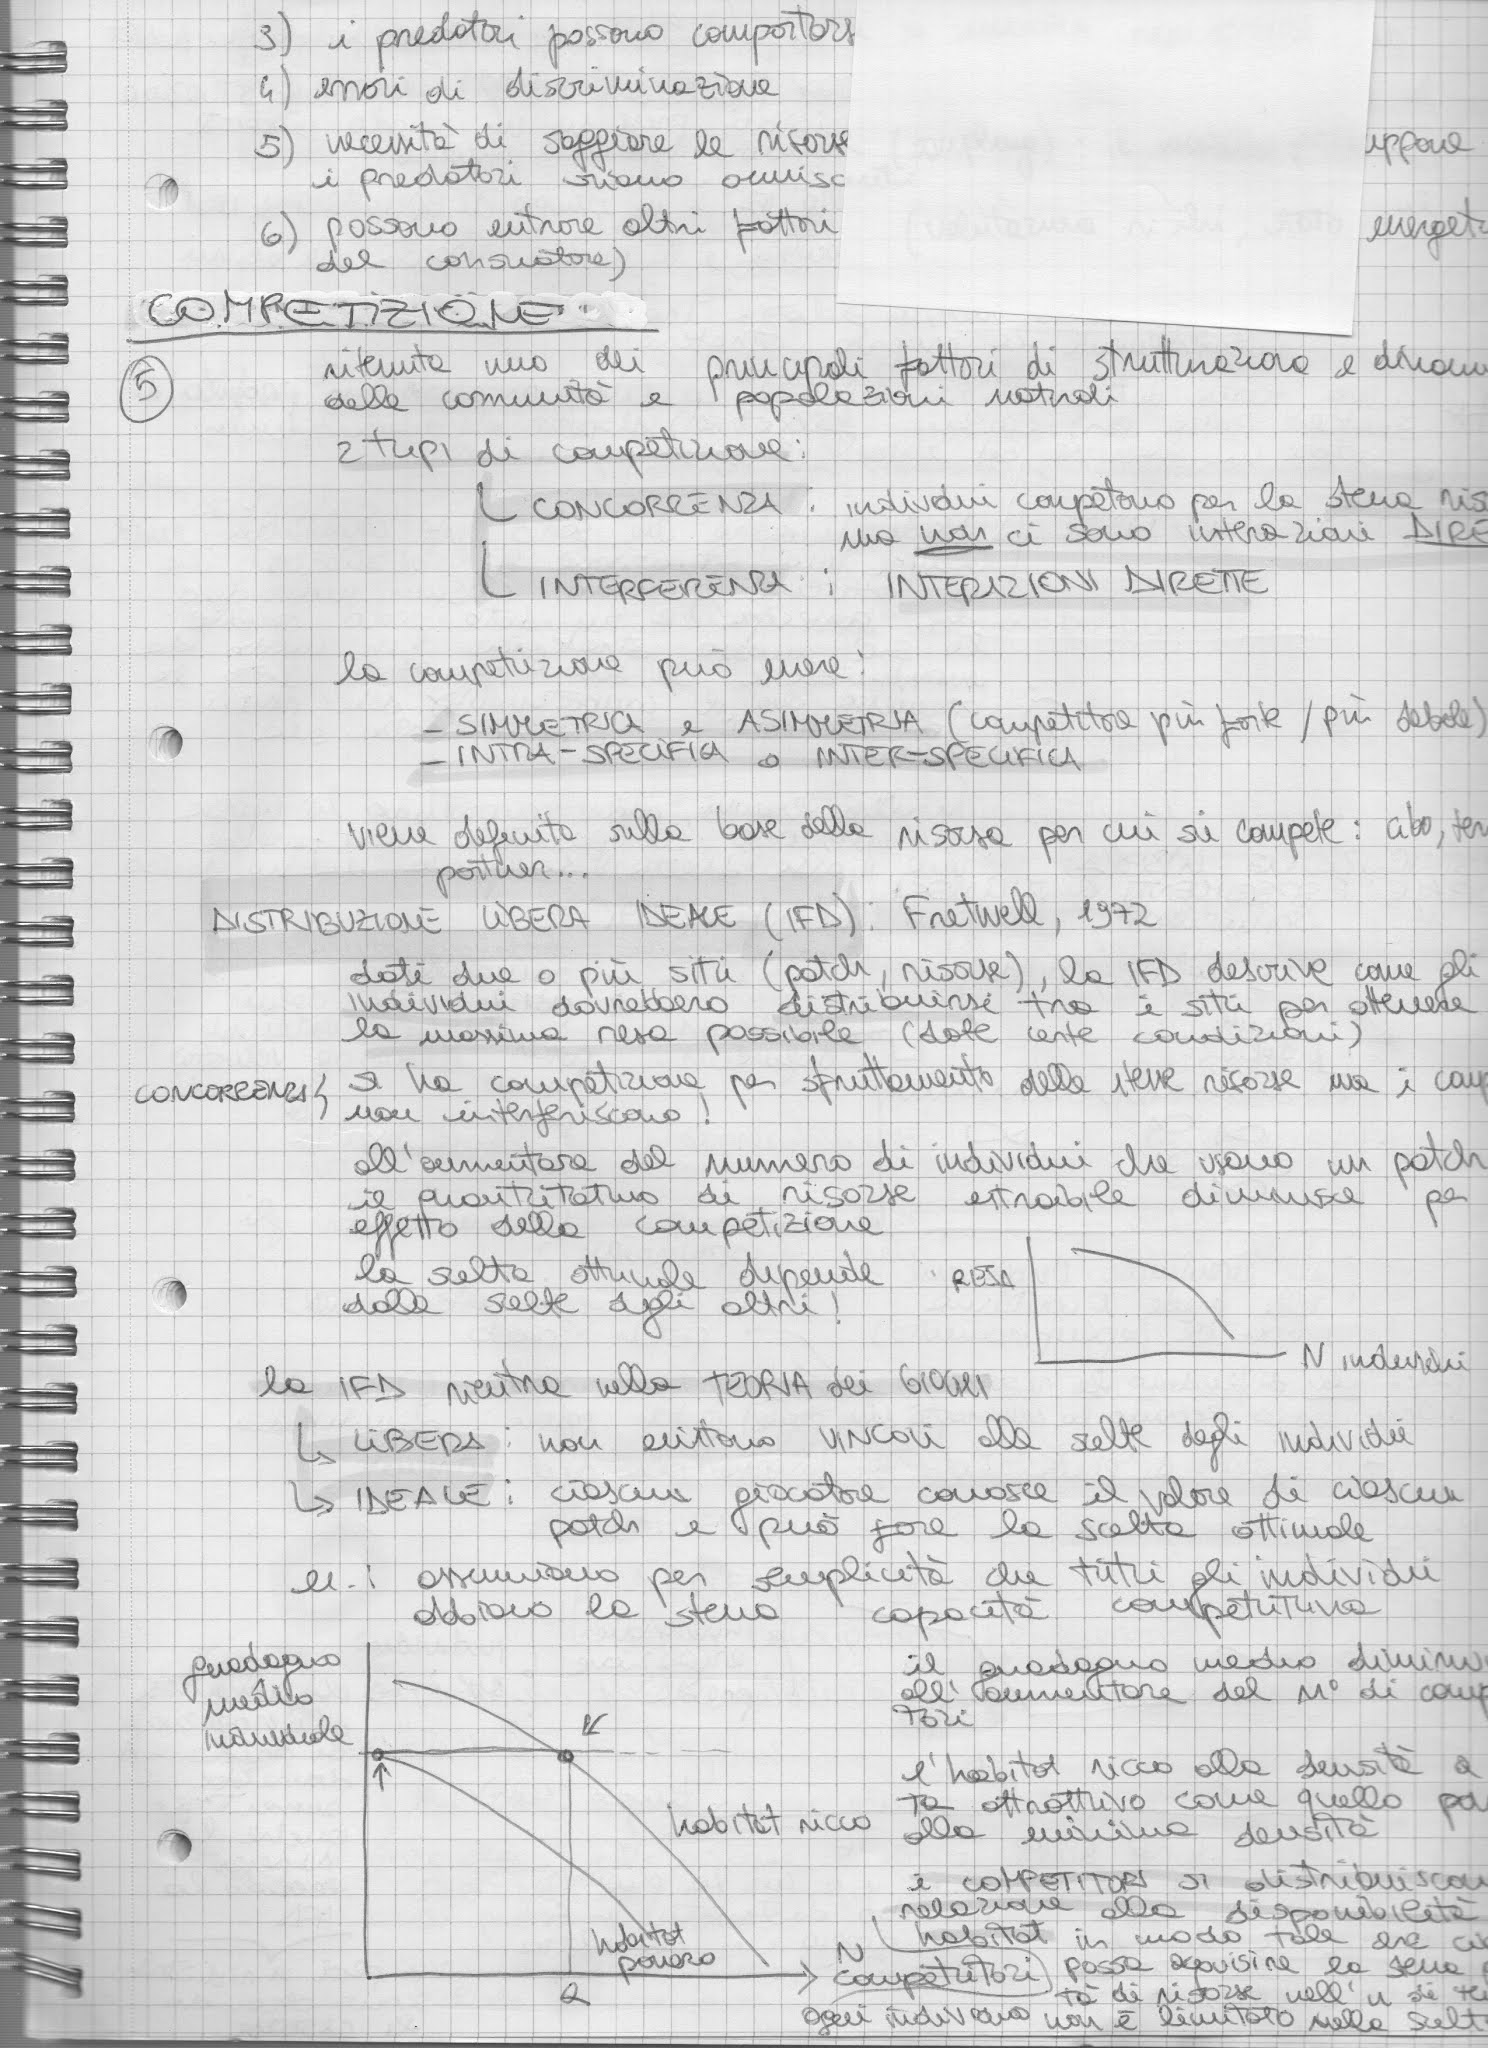 3) i predatori possono comportars
4) errori di discriminazione
5) necessità di saggiare le risorse
uppone
i predatori siano onnisc
6) possono entrare altri fattori
energet
del consumatore)
COMPETIZIONE
5
ritenuta uno dei principali fattori di strutturazione e dinam
delle comunità e popolazioni naturali
2 tipi di competizione:
CONCORRENZA : individui competono per la stessa ris
ma non ci sono interazioni DIRE
INTERFERENZA : INTERAZIONI DIRETTE
la competizione può essere:
- SIMMETRICA e ASIMMETRIA (competitore più forte / più debole)
- INTRA-SPECIFICA o INTER-SPECIFICA
viene definita sulla base della risorsa per cui si compete: cibo, ter
partner...
DISTRIBUZIONE LIBERA IDEALE (IFD): Fretwell, 1972
dati due o più siti (patch, risorse), la IFD descrive come gli
individui dovrebbero distribuirsi tra i siti per ottenere
la massima resa possibile (date certe condizioni)
CONCORRENZA si ha competizione per sfruttamento delle stesse risorse ma i comp
non interferiscono!
all'aumentare del numero di individui che usano un patch
il quantitativo di risorse estraibile diminuisce per
effetto della competizione
la scelta ottimale dipende
dalle scelte degli altri!
RESA
N individui
la IFD rientra nella TEORIA dei GIOCHI
↳ LIBERA: non esistono VINCOLI alle scelte degli individui
↳ IDEALE: ciascun giocatore conosce il valore di ciascun
patch e può fare la scelta ottimale
es.: assumiamo per semplicità che tutti gli individui
abbiano la stessa capacità competitiva
guadagno
medio
individuale
habitat ricco
habitat
povero
a
N
competitori
il guadagno medio diminui
all'aumentare del n° di comp
tori
l'habitat ricco alla densità a
ta attrattivo come quello pov
alla minima densità
i COMPETITORI si distribuiscon
relazione alla disponibilità
habitat in modo tale che ci
possa acquisire la stessa
tà di risorse nell'u di te
ogni individuo non è limitato nella scelt